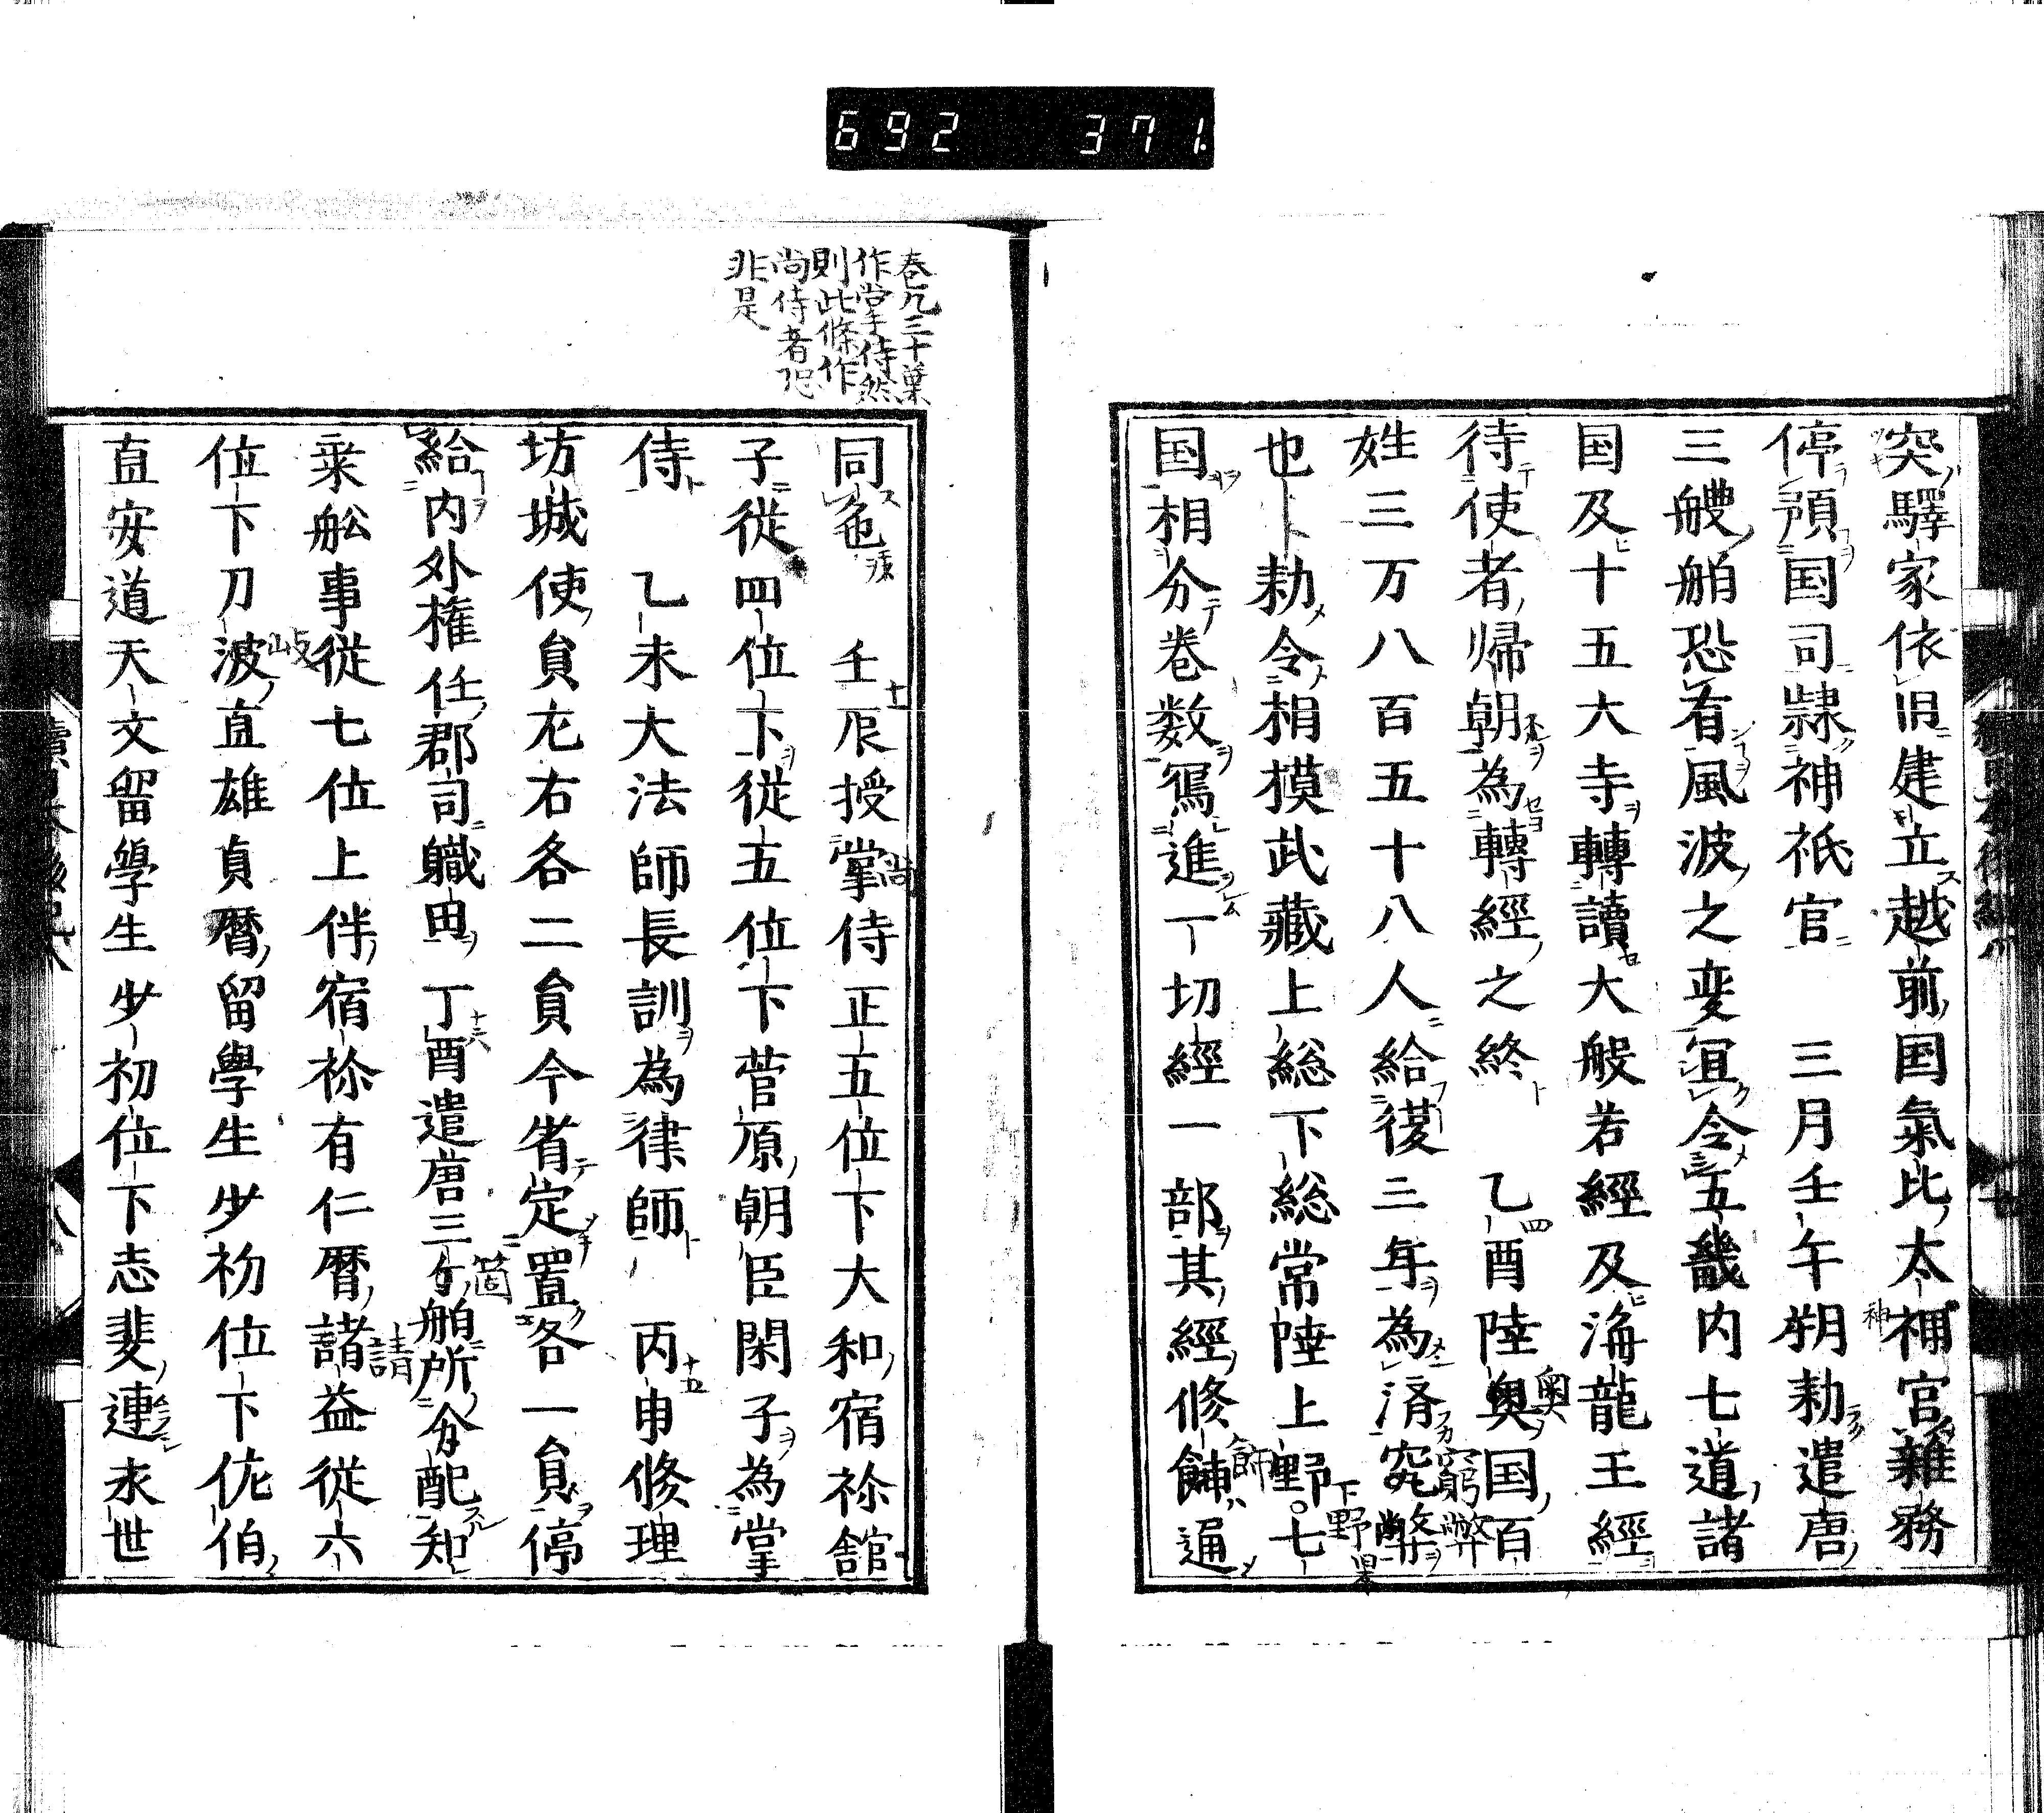 692 371.
突驛家依旧建立越前国氣比太補官雜務
停預国司隷神祇官 三月壬午朔勅遣唐
三艘舶恐有風波之変宜令五畿内七道諸
国及十五大寺轉讀大般若經及海龍王經
待使者帰朝為轉經之終 乙酉陸奥国百
姓三万八百五十八人給復三年為済窮弊
也 勅令相摸武藏上総下総常陸上野七
国相分巻数寫進一切經一部其經修餝通
巻九三十葉
作掌侍然
則此條作
尚侍者恐
非是
同亀 壬辰授掌侍正五位下大和宿祢舘
子從四位下從五位下菅原朝臣閑子為掌
侍 乙未大法師長訓為律師 丙申修理
坊城使負左右各二負今省定置各一負停
給内外権任郡司職田 丁酉遣唐三ケ舶所分配知
乗舩事從七位上伴宿祢有仁暦諸益従六
位下刀波直雄貞暦留學生少初位下佐伯
直安道天文留學生少初位下志斐連永世